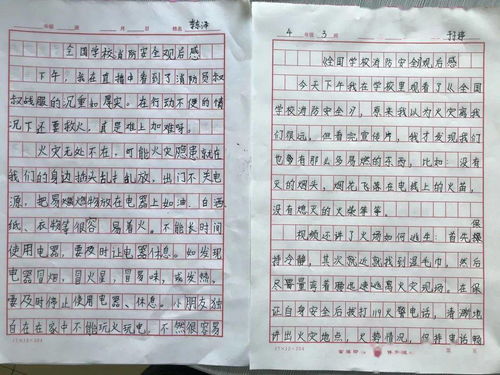 年级 班 月 日 姓名 李海
全国学校消防安全观后感
下午，我在直播中看到了消防员叔
叔战服的沉重如厚实。在行动不便的情
况下还要救火，真是难上加难呀。
火灾无处不在，可能火灾隐患就在
我们的身边插头乱扌乱放，出门不关电
源，把易燃燃物放在电器上如油、白酒
纸、衣物等很容 易着火。不能长时间
使用电器，要及时让电器休息。如发现
电器冒烟，冒火星，冒易味，或发热。
要及时停止使用电器、休息。小朋友独
自在在家中不能玩火玩电，不然很容易
17×12=204
4 年级 3 班
《全国学校消防安全》观后感
今天下午我在学校里观看了从全国
学校消防安全的，原来我以为火灾离我
们很远，但看完宣传片，我才发现我们
也有那么多易燃的东西，比如：没有
灭的烟头，烟花飞落在电线上的火苗，
没有熄灭的火柴等等。
视频还讲了火场如何逃生：首先保
持冷静，其次就近就找到湿毛巾。然后
尽量弯着腰迅速逃离火灾现场。在保
证自身安全后拨打119火警电话，清晰地
讲出火灾地点，火势情况，但持电话畅
17×12=204
第 页